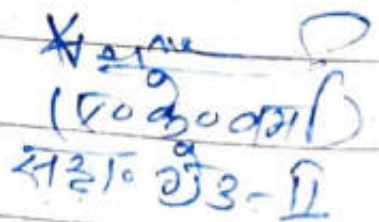 (ए०के०वर्मा)
सहा० ग्रेड-II